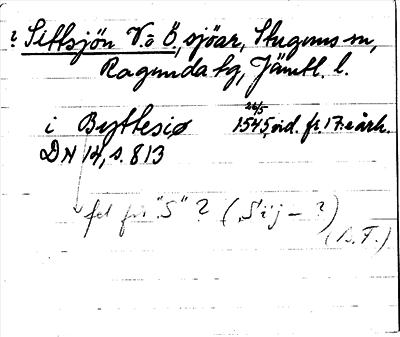 ? Sittsjön V. o Ö, sjöar, Stuguns sn,
Ragunda tg, Jämtl. l.
26/5
i Byttesiø 1545, vid. fr. 17:e årh.
DN 14, s. 813
fel för "S" ? ( Sij - ? )
( B. F. )